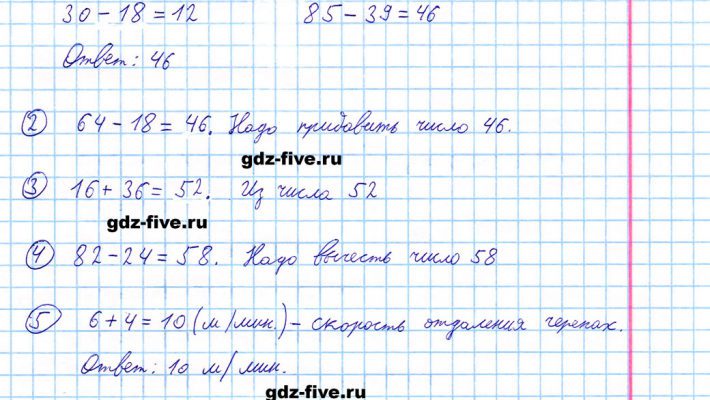 30 - 18 = 12 85 - 39 = 46
Ответ: 46
2 64 - 18 = 46. Надо прибавить число 46.
gdz-five.ru
3 16 + 36 = 52. Из числа 52
gdz-five.ru
4 82 - 24 = 58. Надо вычесть число 58
5 6 + 4 = 10 (м/мин.) - скорость отдаления черепах.
Ответ: 10 м/мин.
gdz-five.ru